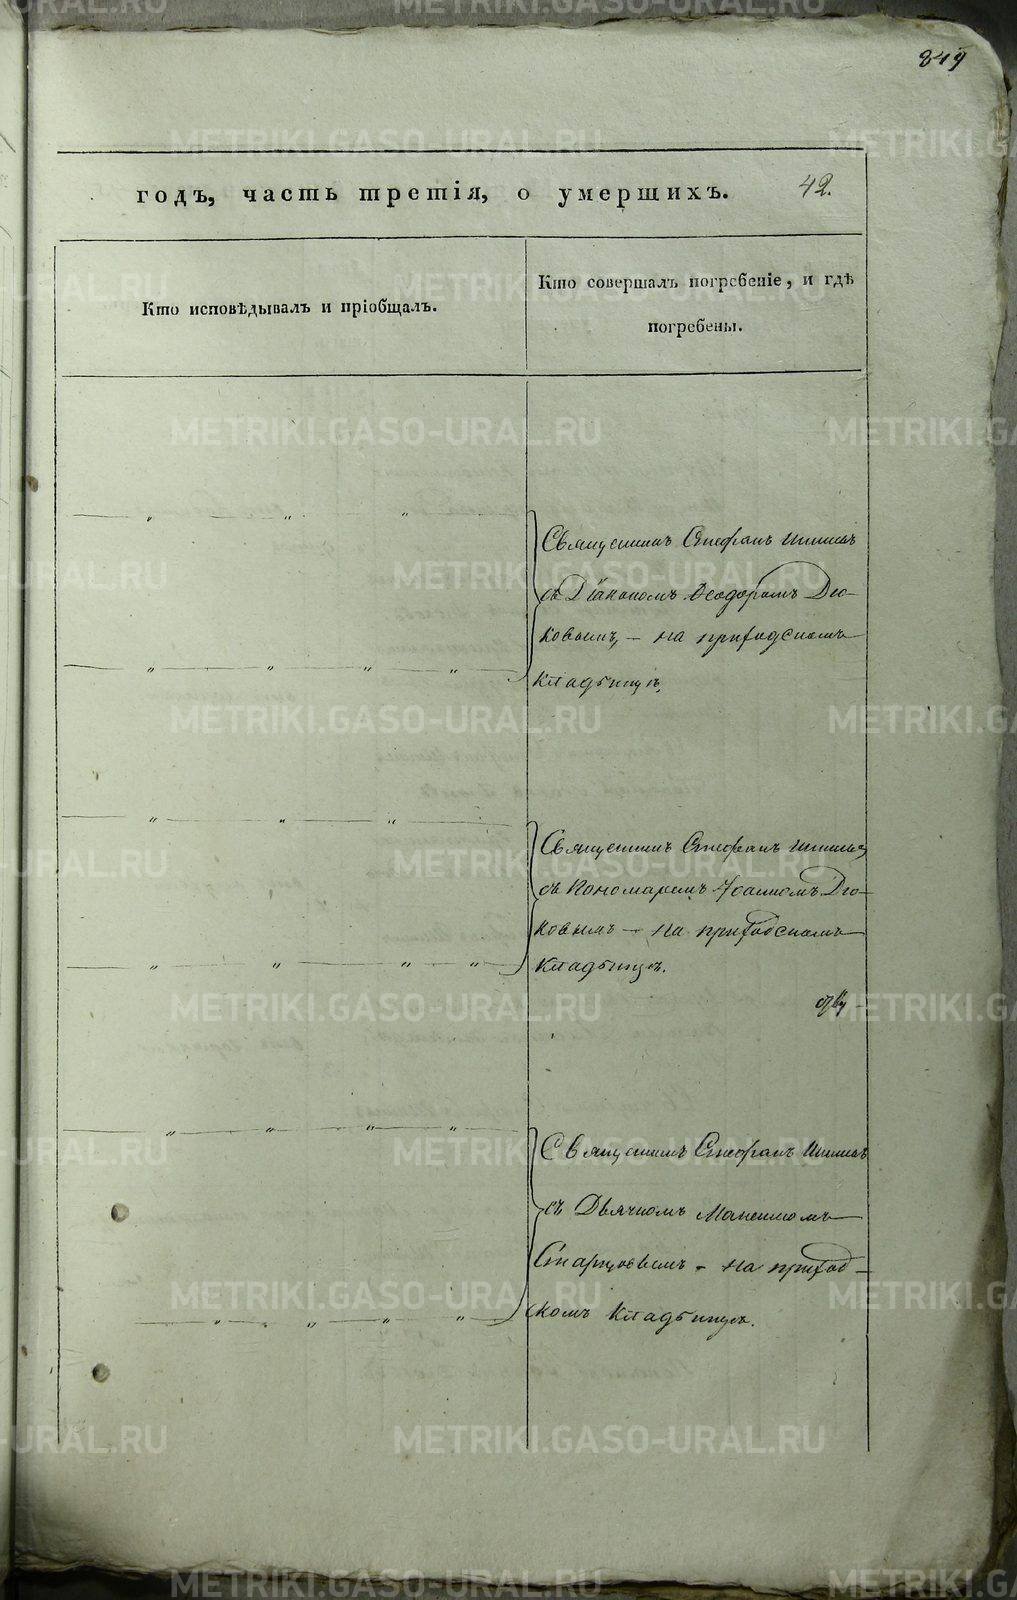 849
годъ, часть третія, о умершихъ. 42.
Кто исповѣдывалъ и пріобщалъ.
Кто совершалъ погребеніе, и гдѣ
погребены.
Священникъ Стефанъ
съ Діакономъ Ѳеодоромъ Дю-
ковымъ, – на приходскомъ
кладбищѣ
Священникъ Стефанъ
съ Пономаремъ Дю-
ковымъ – на приходскомъ
кладбищѣ.
Священникъ Стефанъ
съ Дьячкомъ Максимомъ
Старцовымъ – на приход-
скомъ кладбищѣ.
METRIKI.GASO-URAL.RU